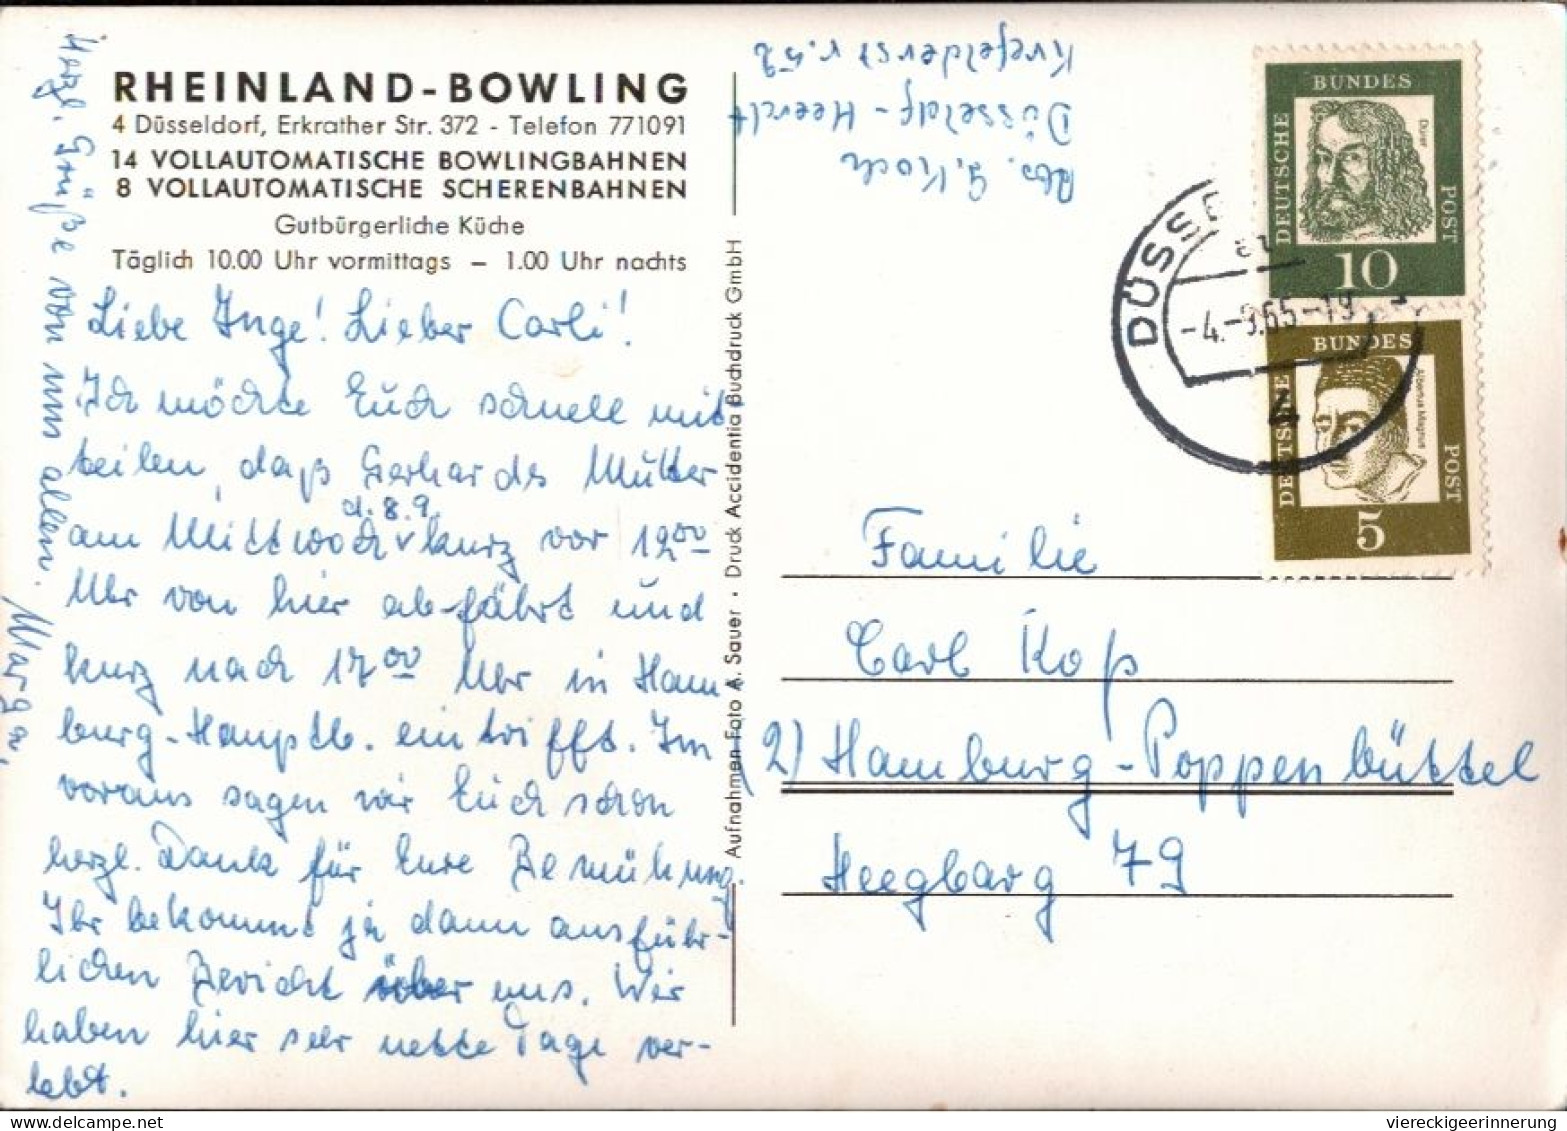 RHEINLAND-BOWLING
4 Düsseldorf, Erkrather Str. 372 - Telefon 771091
14 VOLLAUTOMATISCHE BOWLINGBAHNEN
8 VOLLAUTOMATISCHE SCHERENBAHNEN
Gutbürgerliche Küche
Täglich 10.00 Uhr vormittags – 1.00 Uhr nachts
Liebe Inge! Lieber Carli!
Ich möchte Euch schnell mit
teilen, daß Gerhardes Mutter
d. 8.9.
am Mittwoch v kurz vor 12⁰⁰
Uhr von hier ab-fährt und
kurz nach 17⁰⁰ Uhr in Ham
burg-Hauptb. eintrifft. Im
voraus sagen wir Euch schon
herzl. Dank für Eure Bemühung.
Ihr bekommt ja dann ausführ-
lichen Bericht über uns. Wir
haben hier sehr nette Tage ver-
lebt.
Herzl. Grüße von uns allen. Marga.
Aufnahmen Foto A. Sauer · Druck Accidentia Buchdruck GmbH
Abs. G. Koch
Düsseldf-Heerdt
Krefelderstr. 52
DÜSSE
-4.-9.65-19
4
BUNDES
DEUTSCHE
POST
Dürer
10
BUNDES
DEUTSCHE
POST
Albertus Magnus
5
Familie
Carl Kop
(2) Hamburg-Poppenbüttel
Heegbarg 79
viereckigeerinnerung